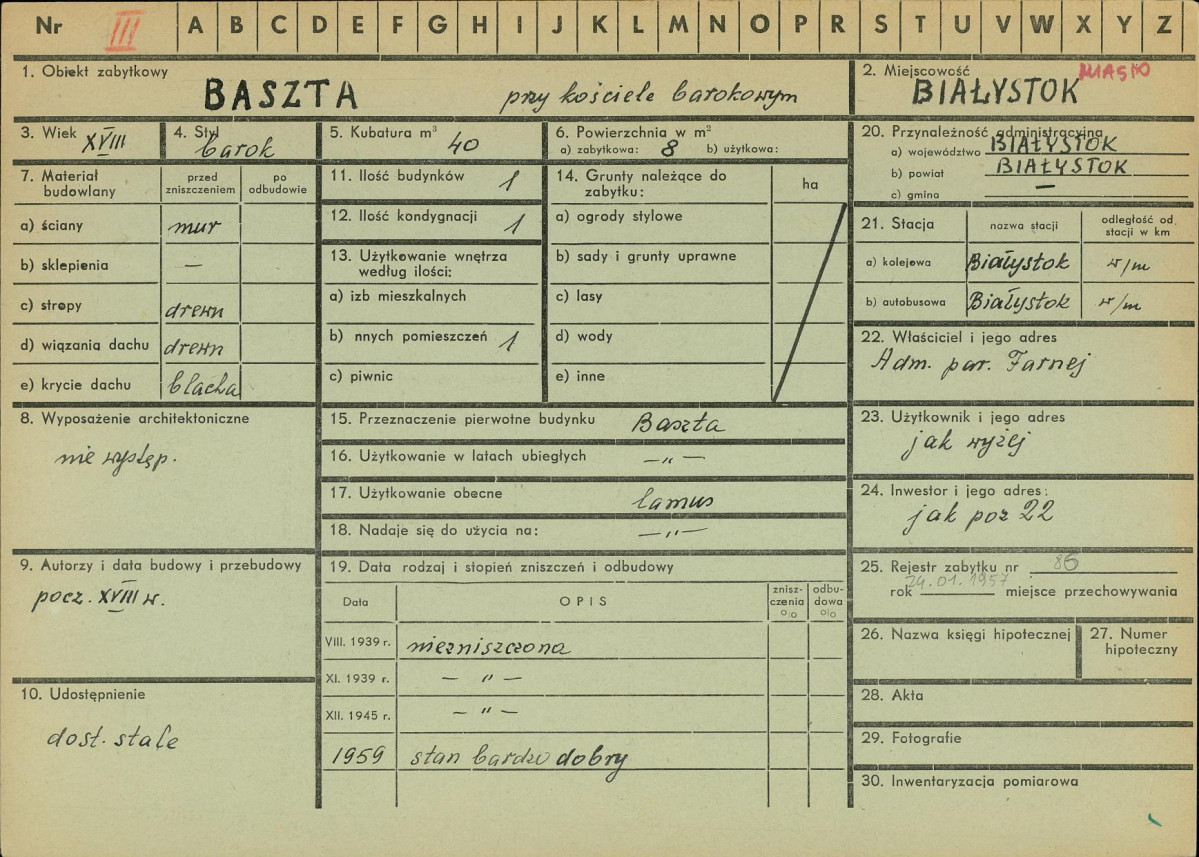 Nr III A B C D E F G H I J K L M N O P R S T U V W X Y Z
1. Obiekt zabytkowy
BASZTA przy kościele barokowym
2. Miejscowość MIASTO
BIAŁYSTOK
3. Wiek XVIII
4. Styl barok
5. Kubatura m³
40
6. Powierzchnia w m²
a) zabytkowa: 8 b) użytkowa:
7. Materiał budowlany
przed zniszczeniem
po odbudowie
a) ściany mur
b) sklepienia —
c) stropy drewn
d) wiązania dachu drewn
e) krycie dachu blacha
8. Wyposażenie architektoniczne
nie występ.
9. Autorzy i data budowy i przebudowy
pocz. XVIII w.
10. Udostępnienie
dost. stale
11. Ilość budynków 1
12. Ilość kondygnacji 1
13. Użytkowanie wnętrza
według ilości:
a) izb mieszkalnych
b) nnych pomieszczeń 1
c) piwnic
14. Grunty należące do
zabytku:
ha
a) ogrody stylowe
b) sady i grunty uprawne
c) lasy
d) wody
e) inne
15. Przeznaczenie pierwotne budynku Baszta
16. Użytkowanie w latach ubiegłych — „ —
17. Użytkowanie obecne lamus
18. Nadaje się do użycia na: — „ —
19. Data rodzaj i stopień zniszczeń i odbudowy
Data
OPIS
znisz-
czenia
%
odbu-
dowa
%
VIII. 1939 r. niezniszczona
XI. 1939 r. — „ —
XII. 1945 r. — „ —
1959 stan bardzo dobry
20. Przynależność administracyjna
a) województwo BIAŁYSTOK
b) powiat BIAŁYSTOK
c) gmina —
21. Stacja
nazwa stacji
odległość od
stacji w km
a) kolejowa Białystok w/m
b) autobusowa Białystok w/m
22. Właściciel i jego adres
Adm. par. Farnej
23. Użytkownik i jego adres
jak wyżej
24. Inwestor i jego adres:
jak poz 22
25. Rejestr zabytku nr 86
rok 24.01.1957 miejsce przechowywania
26. Nazwa księgi hipotecznej
27. Numer
hipoteczny
28. Akta
29. Fotografie
30. Inwentaryzacja pomiarowa